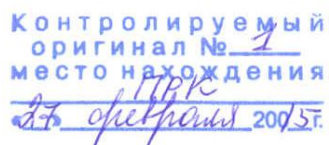 Контролируемый
оригинал № 1
место нахождения
ПРК
«27» февраля 20015г.